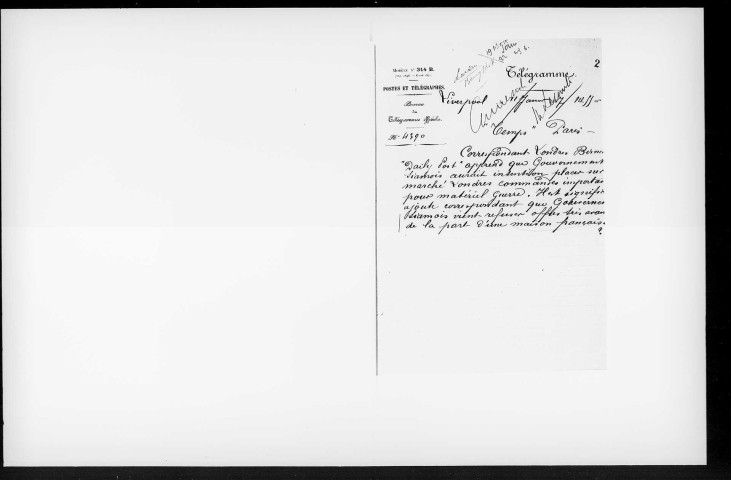 2
Modèle N° 344 B.
Télégramme.
POSTES ET TÉLÉGRAPHES.
Liverpool
Bureau
des
Télégrammes
N° 4390
"Temps" Paris —
Correspondant Londres
"Daily Post" apprend que Gouvernement
siamois aurait intention placer sur
marché Londres commandes importan
pour matériel guerre. Il est significa
ajoute correspondant que Gouvernem
siamois vient refuser offres très avan
de la part d'une maison française.